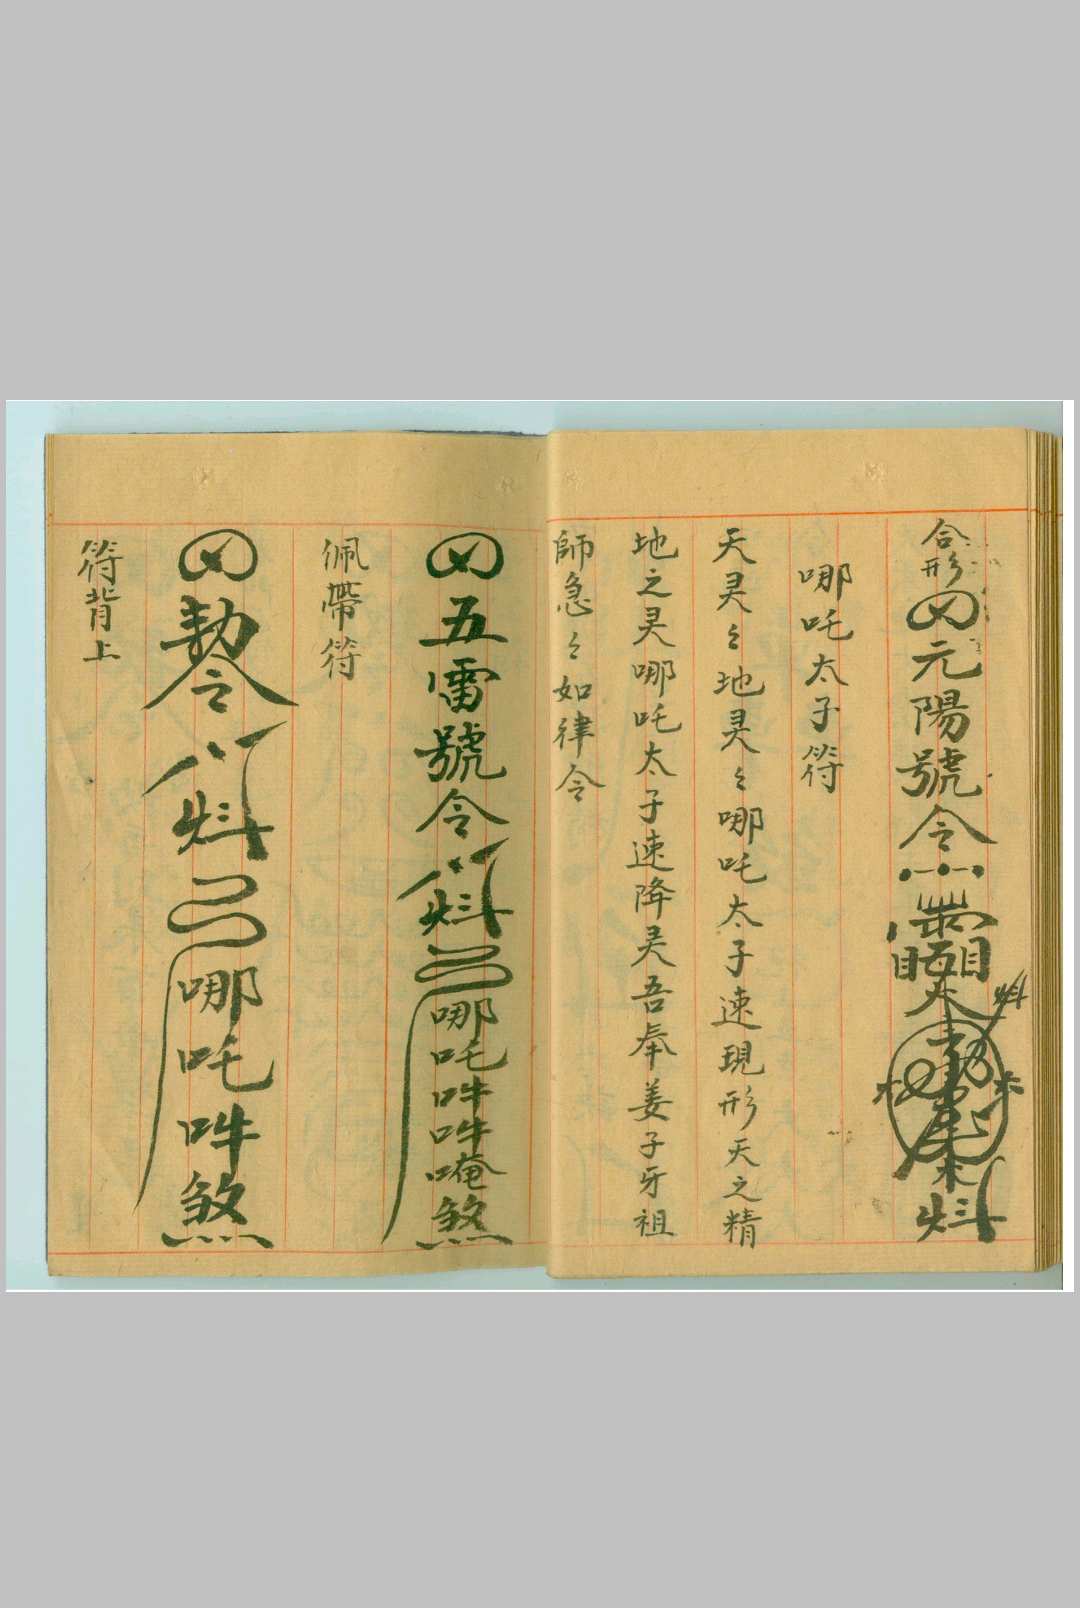 合形 元陽號令
哪吒太子符
天灵々地灵々哪吒太子速現形天之精
地之灵哪吒太子速降灵吾奉姜子牙祖
師急々如律令
五雷號令 哪吒吽吽唵煞
佩帶符
勅令 哪吒吽煞
符背上